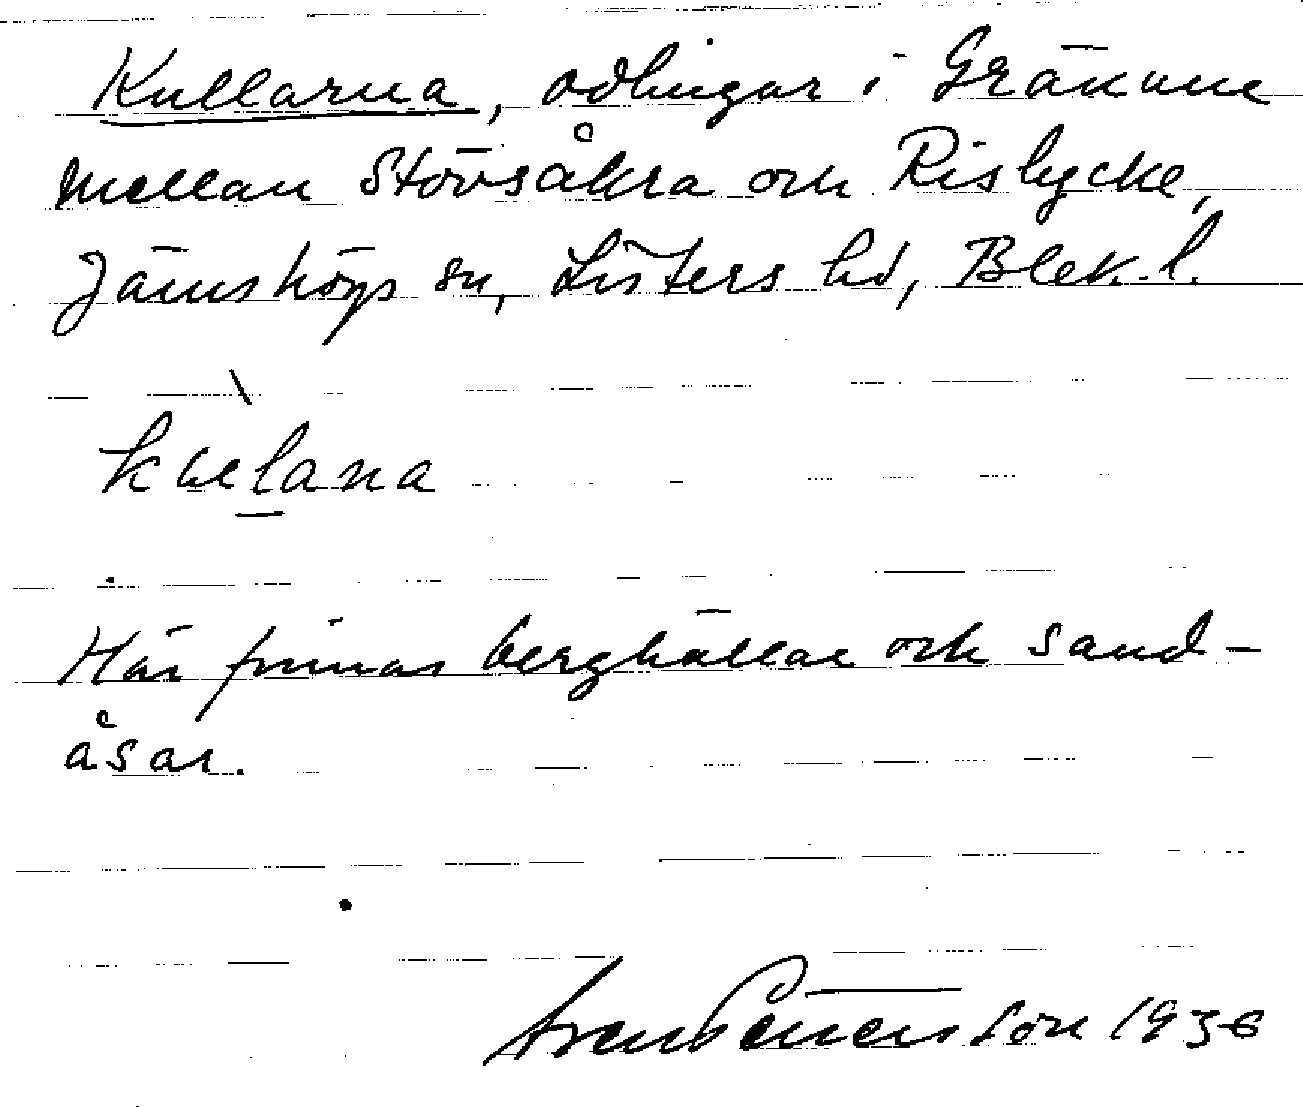 Kullarna, odlingar i Gränum
mellan Stövsåkra och Rislycke,
Jämshögs sn, Listers hd, Blek. l.
Här finnas berghällar och sand-
åsar.
1936